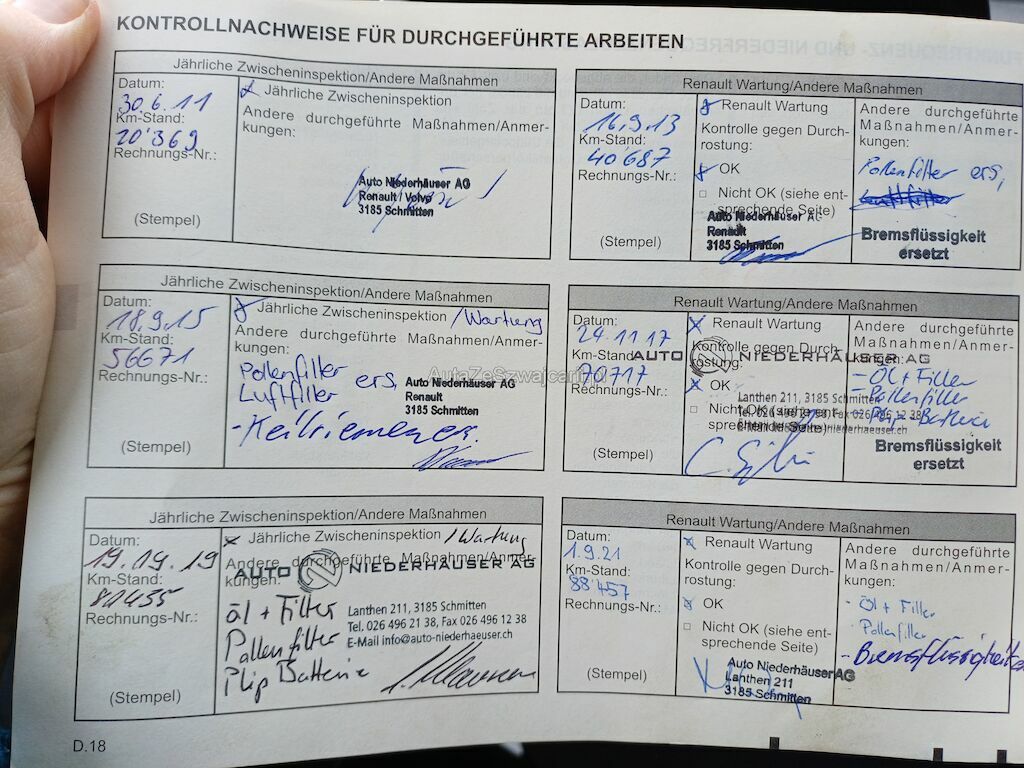 KONTROLLNACHWEISE FÜR DURCHGEFÜHRTE ARBEITEN
Jährliche Zwischeninspektion/Andere Maßnahmen
Datum:
30.6.11
Km-Stand:
20'369
Rechnungs-Nr.:
(Stempel)
Jährliche Zwischeninspektion
Andere durchgeführte Maßnahmen/Anmer-
kungen:
Auto Niederhäuser AG
Renault / Volvo
3185 Schmitten
Renault Wartung/Andere Maßnahmen
Datum:
16.9.13
Km-Stand:
40'687
Rechnungs-Nr.:
(Stempel)
Renault Wartung
Kontrolle gegen Durch-
rostung:
OK
Nicht OK (siehe ent-
sprechende Seite)
Auto Niederhäuser AG
Renault
3185 Schmitten
Andere durchgeführte
Maßnahmen/Anmer-
kungen:
Pollenfilter ers,
Bremsflüssigkeit
ersetzt
Jährliche Zwischeninspektion/Andere Maßnahmen
Datum:
18.9.15
Km-Stand:
56671
Rechnungs-Nr.:
(Stempel)
Jährliche Zwischeninspektion /Wartung
Andere durchgeführte Maßnahmen/Anmer-
kungen:
Pollenfilter
Luftfilter ers,
- Keilriemen ers.
Auto Niederhäuser AG
Renault
3185 Schmitten
AutaZeSzwajcarii
Renault Wartung/Andere Maßnahmen
Datum:
24.11.17
Km-Stand:
70'717
Rechnungs-Nr.:
(Stempel)
Renault Wartung
Kontrolle gegen Durch-
rostung:
OK
Nicht OK (siehe ent-
sprechende Seite)
AUTO NIEDERHÄUSER AG
Lanthen 211, 3185 Schmitten
Tel. 026 496 21 38, Fax 026 496 12 38
E-Mail info@auto-niederhaeuser.ch
Andere durchgeführte
Maßnahmen/Anmer-
kungen:
- Öl + Filter
- Pollenfilter
- Plip-Batterie
Bremsflüssigkeit
ersetzt
Jährliche Zwischeninspektion/Andere Maßnahmen
Datum:
19.09.19
Km-Stand:
81455
Rechnungs-Nr.:
(Stempel)
Jährliche Zwischeninspektion /Wartung
Andere durchgeführte Maßnahmen/Anmer-
kungen:
AUTO NIEDERHÄUSER AG
Lanthen 211, 3185 Schmitten
Tel. 026 496 21 38, Fax 026 496 12 38
E-Mail info@auto-niederhaeuser.ch
öl + Filter
Pollenfilter
Plip Batterie
Renault Wartung/Andere Maßnahmen
Datum:
1.9.21
Km-Stand:
88'457
Rechnungs-Nr.:
(Stempel)
Renault Wartung
Kontrolle gegen Durch-
rostung:
OK
Nicht OK (siehe ent-
sprechende Seite)
Auto Niederhäuser AG
Lanthen 211
3185 Schmitten
Andere durchgeführte
Maßnahmen/Anmer-
kungen:
- Öl + Filter
- Pollenfilter
- Bremsflüssigkeit
D.18